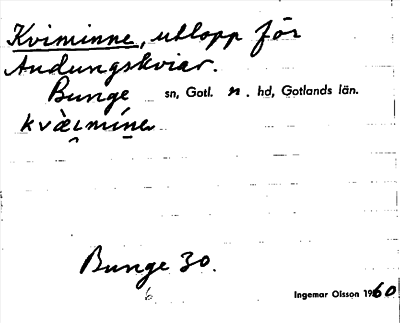 Kviminne, utlopp för
Andungskviar.
Bunge sn, Gotl. n. hd, Gotlands län.
kvæ̀ɩmíne
Bunge 30.
Ingemar Olsson 1960